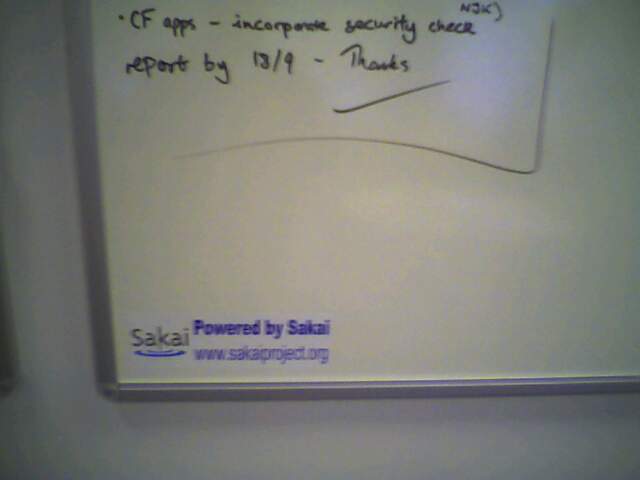 NJK)
• CF apps - incorporate security check
report by 18/9 - Thanks
Sakai
Powered by Sakai
www.sakaiproject.org